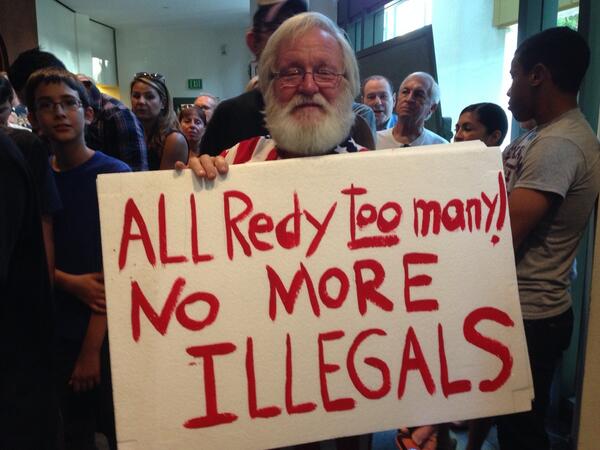 ALL Redy too many!
No MORE
ILLEGALS
EXIT